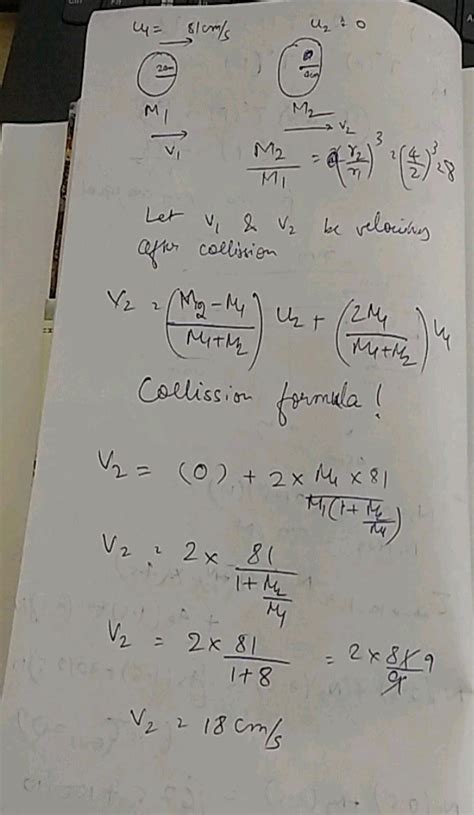 u₁ = → 81cm/s    u₂ = 0
2cm    4cm
M₁    M₂
→ V₁    → V₂
M₂/M₁ = (r₂/r₁)³ = (4/2)³ = 8
Let V₁ & V₂ be velocities
after collission
V₂ = ((M₂ - M₁)/(M₁+M₂)) u₂ + (2M₁/(M₁+M₂)) u₁
Collission formula !
V₂ = (0) + 2 × M₁ × 81/(M₁(1 + M₂/M₁))
V₂ = 2 × 81/(1 + M₂/M₁)
V₂ = 2 × 81/(1+8) = 2 × 81/9 9
V₂ = 18 cm/s